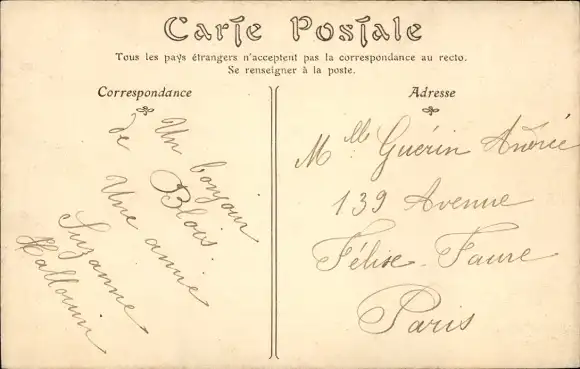 Carte Postale
Tous les pays étrangers n'acceptent pas la correspondance au recto.
Se renseigner à la poste.
Correspondance
Un bonjour
de Blois
Une amie
Suzanne
Hallouin
Adresse
Mlle Guérin Andrée
139 Avenue
Félise-Faure
Paris